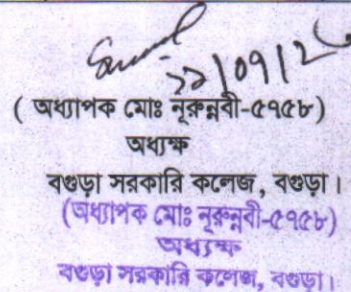 ২২/০৭/২৬
( অধ্যাপক মোঃ নূরুন্নবী-৫৭৫৮)
অধ্যক্ষ
বগুড়া সরকারি কলেজ, বগুড়া।
(অধ্যাপক মোঃ নূরুন্নবী-৫৭৫৮)
অধ্যক্ষ
বগুড়া সরকারি কলেজ, বগুড়া।